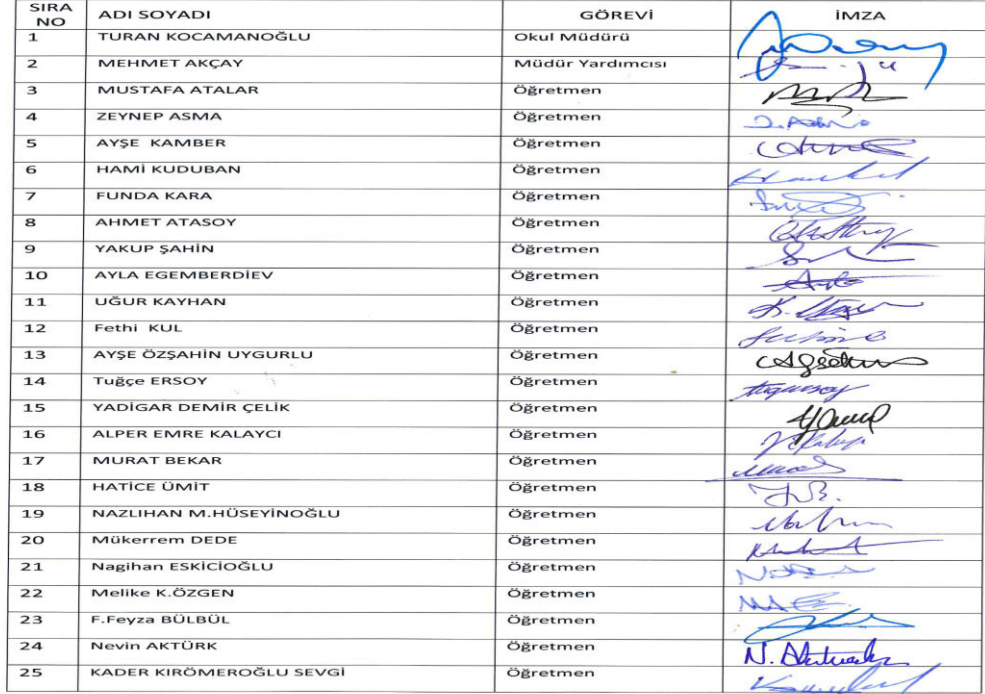 SIRA NO ADI SOYADI GÖREVİ İMZA
1 TURAN KOCAMANOĞLU Okul Müdürü
2 MEHMET AKÇAY Müdür Yardımcısı
3 MUSTAFA ATALAR Öğretmen
4 ZEYNEP ASMA Öğretmen
5 AYŞE KAMBER Öğretmen
6 HAMİ KUDUBAN Öğretmen
7 FUNDA KARA Öğretmen
8 AHMET ATASOY Öğretmen
9 YAKUP ŞAHİN Öğretmen
10 AYLA EGEMBERDİEV Öğretmen
11 UĞUR KAYHAN Öğretmen
12 Fethi KUL Öğretmen
13 AYŞE ÖZŞAHİN UYGURLU Öğretmen
14 Tuğçe ERSOY Öğretmen
15 YADİGAR DEMİR ÇELİK Öğretmen
16 ALPER EMRE KALAYCI Öğretmen
17 MURAT BEKAR Öğretmen
18 HATİCE ÜMİT Öğretmen
19 NAZLIHAN M.HÜSEYİNOĞLU Öğretmen
20 Mükerrem DEDE Öğretmen
21 Nagihan ESKİCİOĞLU Öğretmen
22 Melike K.ÖZGEN Öğretmen
23 F.Feyza BÜLBÜL Öğretmen
24 Nevin AKTÜRK Öğretmen
25 KADER KIRÖMEROĞLU SEVGİ Öğretmen